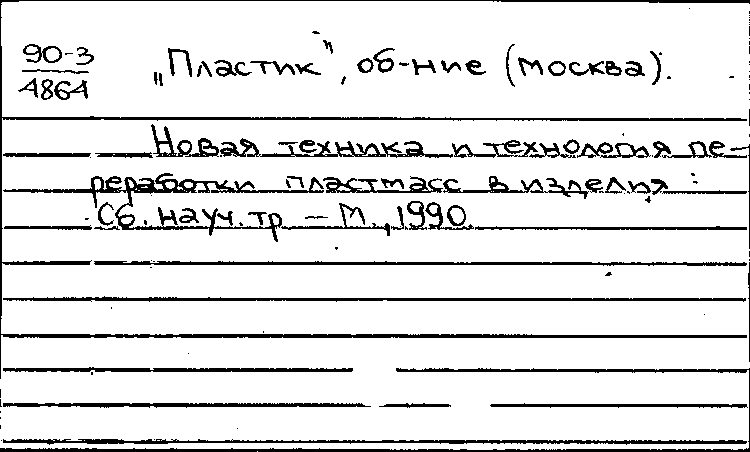 90-3
4864
„Пластик”, об-ние (Москва).
Новая техника и технология пе-
реработки пластмасс в изделия :
Сб. науч. тр – М., 1990.